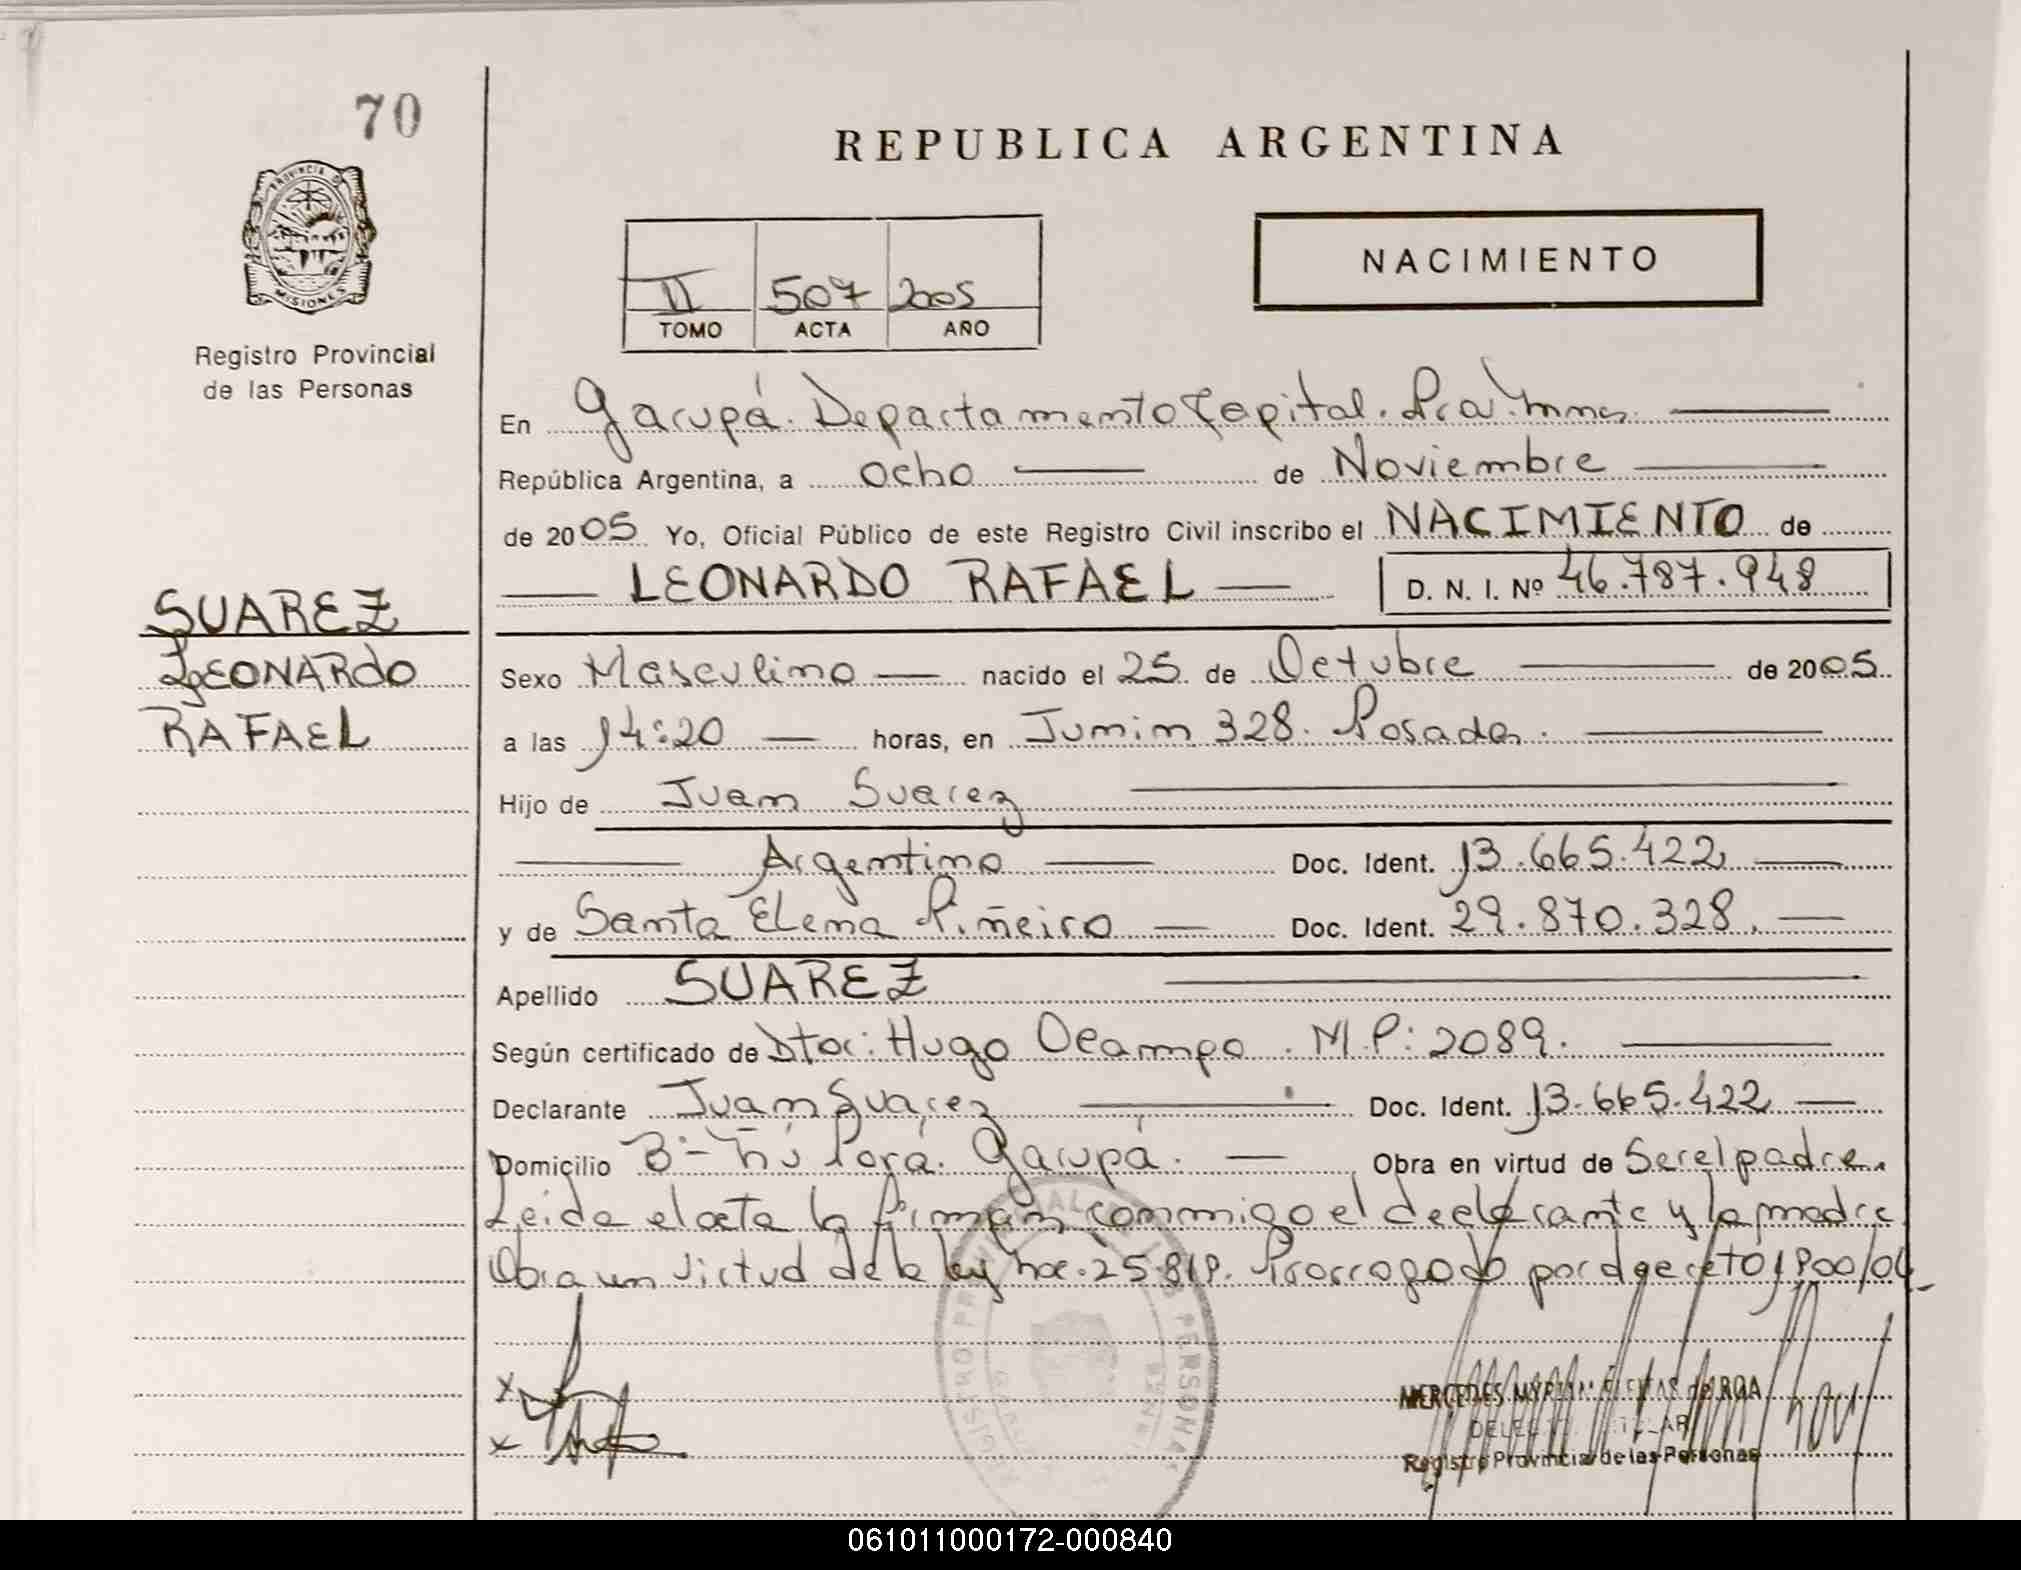 70
REPUBLICA ARGENTINA
PROVINCIA DE
MISIONES
NACIMIENTO
II 507 2005
TOMO ACTA AÑO
Registro Provincial
de las Personas
En Garupá. Departamento Capital. Pcia. Mnes.
República Argentina, a ocho de Noviembre
de 2005 Yo, Oficial Público de este Registro Civil inscribo el NACIMIENTO de
LEONARDO RAFAEL D. N. I. Nº 46.787.948
SUAREZ
LEONARDO
RAFAEL
Sexo Masculino nacido el 25 de Octubre de 2005
a las 14:20 horas, en Junin 328. Posadas.
Hijo de Juan Suarez
Argentino Doc. Ident. 13.665.422
y de Santa Elena Piñeiro Doc. Ident. 29.870.328.
Apellido SUAREZ
Según certificado de Dtor: Hugo Ocampo. M.P: 2089.
Declarante Juan Suarez Doc. Ident. 13.665.422
Domicilio B- Ñú Porá. Garupá. Obra en virtud de Ser el padre.
Leida el acta la firman conmigo el declarante y la madre
Obra en virtud de la ley nro. 25.819. Prorrogado por decreto 1900/04
REGISTRO PROVINCIAL DE LAS PERSONAS
MERCEDES de ROA
Registro Provincial de las Personas
061011000172-000840